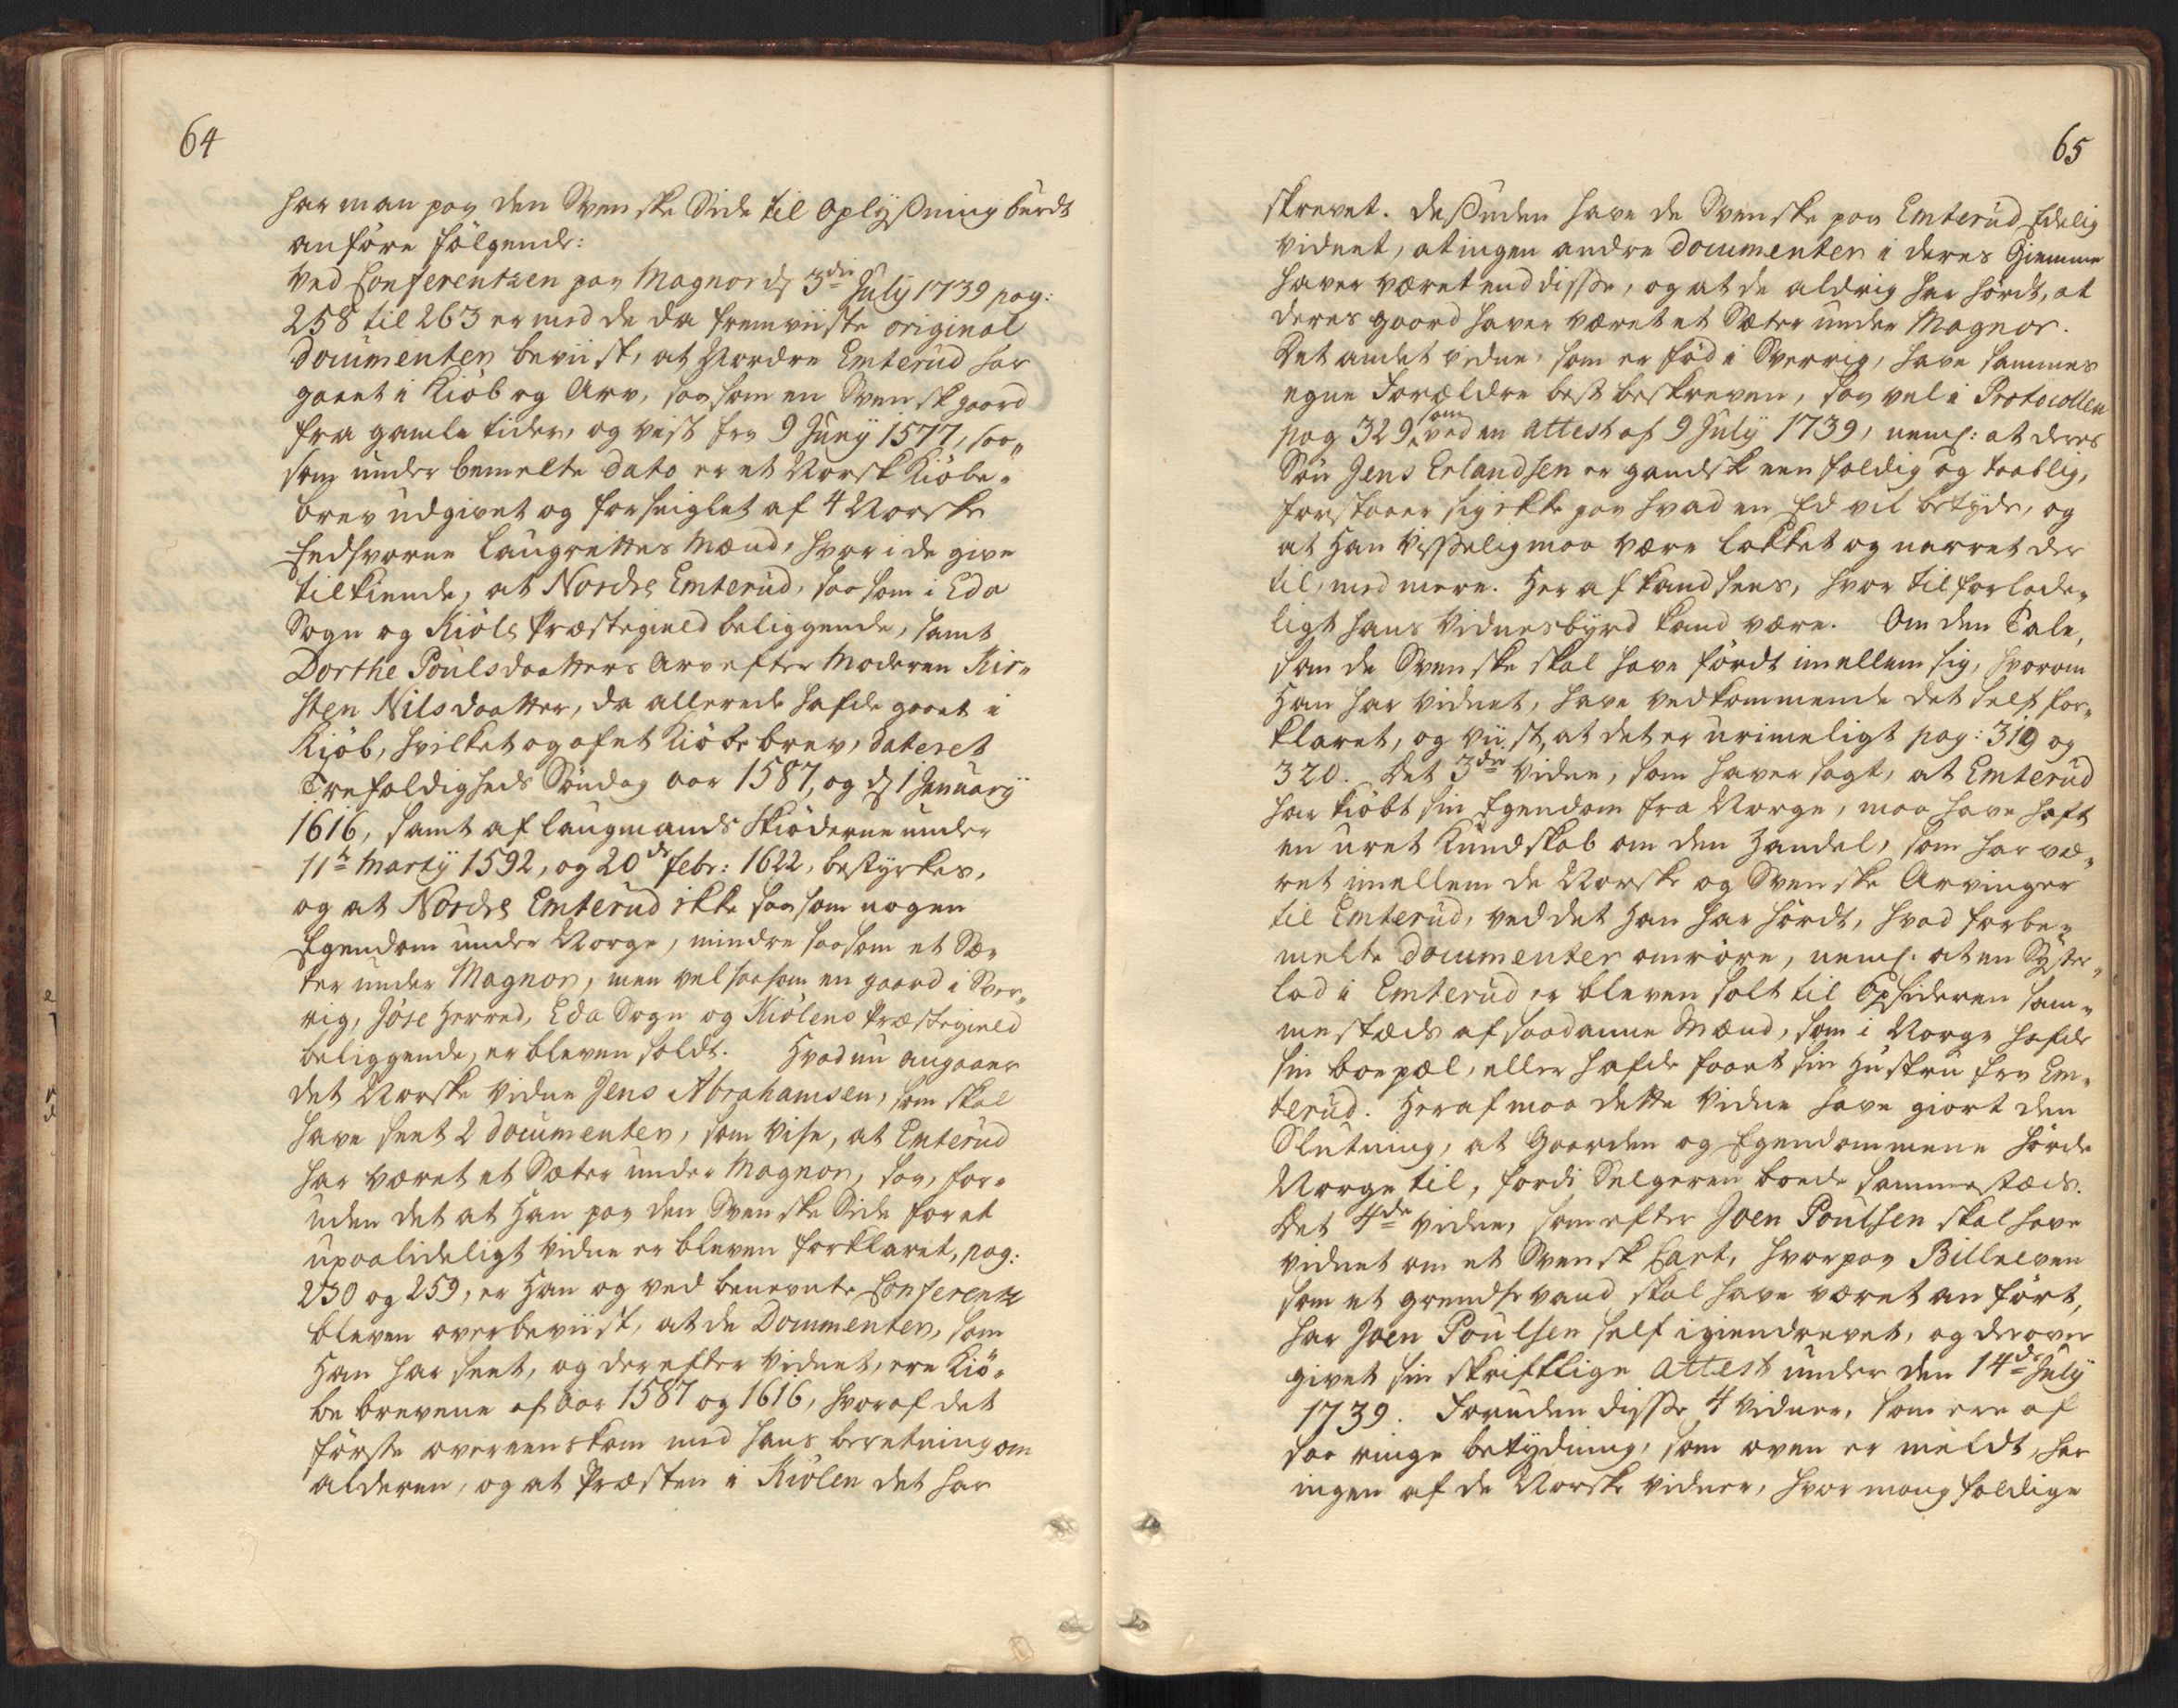 64
har man paa den Svenske Side til Oplysßning burdt
anføre følgende:
Ved Conferentzen paa Magnor d. 3die July 1739 pag:
258 til 263 er med de da fremviiste original
documenter beviist, at Nordre Emterud har
gaaet i Kiöb og Arv, saasom en Svensk gaard
fra gamle tider, og vist fra 9 Juny 1577, saa„
som under bemelte dato er et Norsk Kiöbe„
brev udgivet og forseiglet af 4 Norske
Eedsvorne Laugrettes Mænd, hvori de give
tilkiende, at Nordre Emterud, saasom i Eda
Sogn og Kiöls Præstegield beliggende, samt
Dorthe Poulsdaatters Arv efter Moderen Kir„
sten Nilsdaatter, da allerede hafde gaaet i
Kiöb, hvilket og af et Kiöbe brev, dateret
Trefoldigheds Söndag aar 1587, og d. 1 January
1616, samt af Laugmands Skiöderne under
11te Marty 1592, og 20de febr: 1622, bestyrkes,
og at Nordre Emterud ikke saasom nogen
Egendom under Norge, mindre saasom et Sæ„
ter under Magnor, men vel saasom en gaard i Sver„
rig, Jöse Herred, Eda Sogn og Kiölens Præstegield
beliggende, er bleven soldt. Hvad nu angaaer
det Norske Vidne Jens Abrahamsen, som skal
have seet 2 documenter, som vise, at Emterud
har været et Sæter under Magnor, saa, for„
uden det at Han paa den Svenske Side for et
upaalideligt Vidne er bleven forklaret, pag:
230 og 259, er Han og ved benevnte Conferentz
bleven overbeviist, at de Documenter, som
Han har seet, og derefter Vidnet, ere Kiö„
be brevene af Aar 1587 og 1616, hvoraf det
første overeenskom med hans beretning om
alderen, og at Præsten i Kiölen det har
65
skrevet. desßuden have de Svenske paa Emterud Edelig
vidnet, at ingen andre documenter i deres Giemme
haver været end disse, og at de aldrig har hördt, at
deres gaard haver været et Sæter under Magnor.
Det andet vidne, som er föd i Sverrig, have sammes
egne Forældre best beskreven, saa vel i Protocollen
pag 329, som ved en attest af 9 July 1739, neml: at deres
Sön Jens Erlandsen er gandske eenfoldig og taablig,
forstaaer sig ikke paa hvad en Ed vil betyde, og
at Han visselig maa være lokket og narret der
til, med mere. Her af kand sees, hvor tilforlade„
ligt hans Vidnesbyrd kand være. Om den Tale,
som de Svenske skal have fördt imellem sig, hvorom
Han har vidnet, have vedkommende det self for„
klaret, og viist, at det er urimeligt pag: 319 og
320. Det 3die Vidne, som haver sagt, at Emterud
har kiöbt sin Egendom fra Norge, maa have haft
en uret Kundskab om den Handel, som har væ„
ret imellem de Norske og Svenske Arvinger
til Emterud, ved det Han har hördt, hvad forbe„
melte documenter omröre, neml. at en Syster„
lod i Emterud er bleven solt til Opsideren sam„
mestæds af saadanne Mænd, som i Norge hafde
sin boepæl, eller hafde faaet sin Hustru fra Em„
terud. Heraf maa dette Vidne have giort den
Slutning, at Gaarden og Egendommene hörde
Norge til, fordi Selgeren boede sammestæds.
Det 4de Vidne, som efter Joen Poulsen skal have
vidnet om et Svensk Cart, hvorpaa Billelven
som et grendse vand skal have været anfört,
har Joen Poulsen self igiendrevet, og derover
givet sin skriftlige attest under den 14de July
1739. Foruden disse 4 Vidner, som ere af
saa ringe betydning, som oven er meldt, har
ingen af de Norske Vidner, hvor mangfoldige